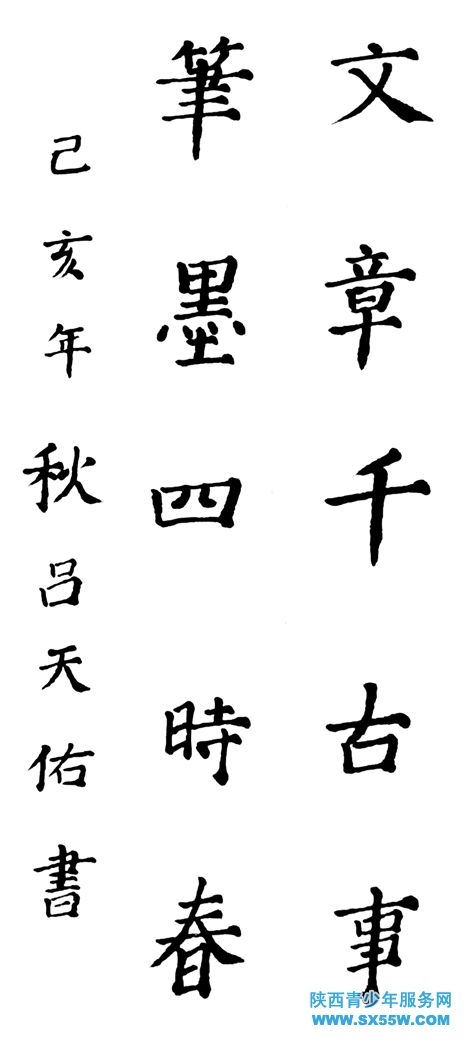 文章千古事
筆墨四時春
己亥年秋吕天佑書
陕西青少年服务网
www.sx55w.com